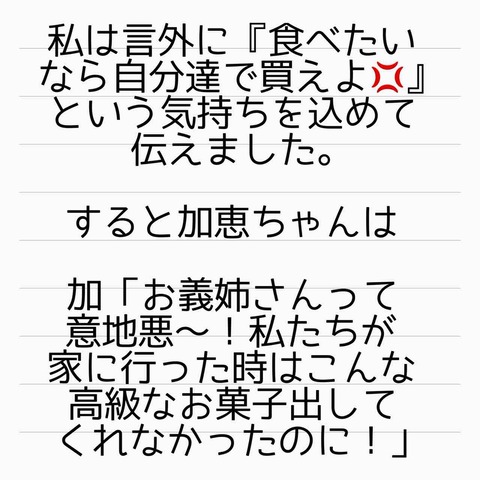 私は言外に『食べたい
なら自分達で買えよ💢』
という気持ちを込めて
伝えました。
すると加恵ちゃんは
加「お義姉さんって
意地悪〜！私たちが
家に行った時はこんな
高級なお菓子出して
くれなかったのに！」